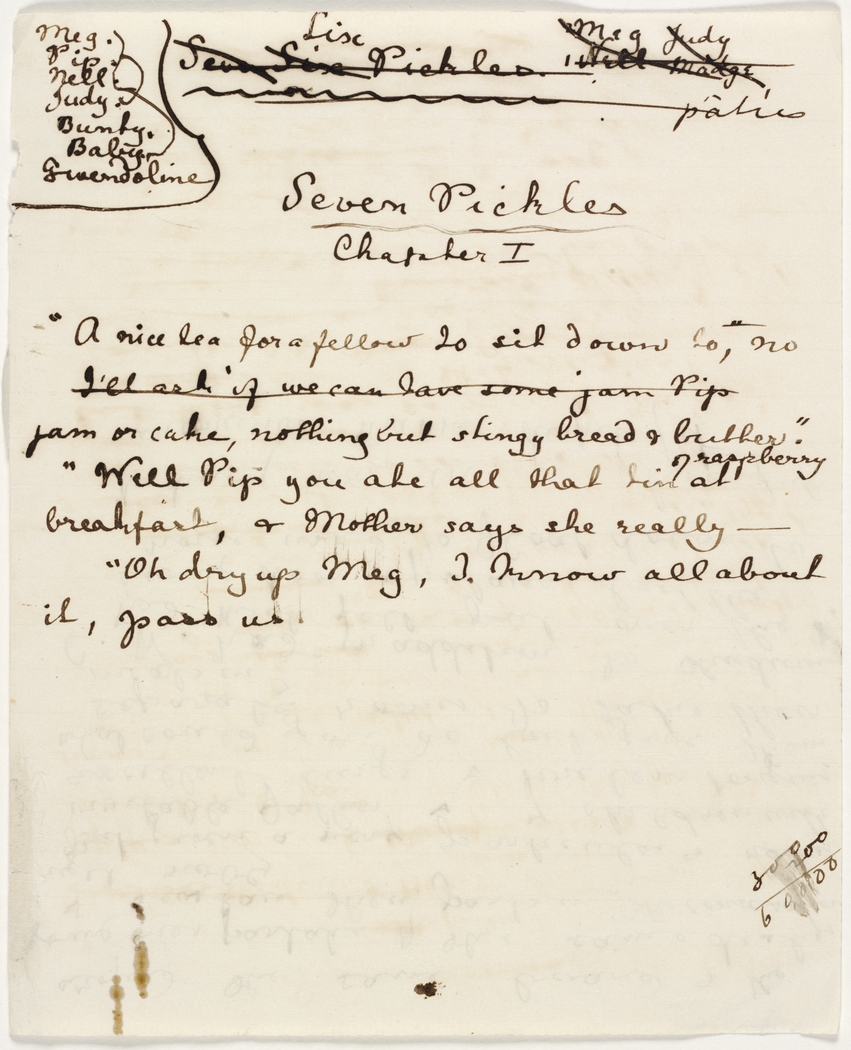 Meg.
Pip.
Nell.
Judy.
Bunty.
Baby.
Gwendoline
Six
Seven Six Pickles.
Meg Judy
Nell Madge
Seven Pickles
Chapter I
"A nice tea for a fellow to sit down to," no
I'll ask if we can have some jam Pip
jam or cake, nothing but stingy bread & butter."
of raspberry
"Well Pip you ate all that tin at
breakfast, & Mother says she really —
"Oh dry up Meg, I know all about
it, pass us